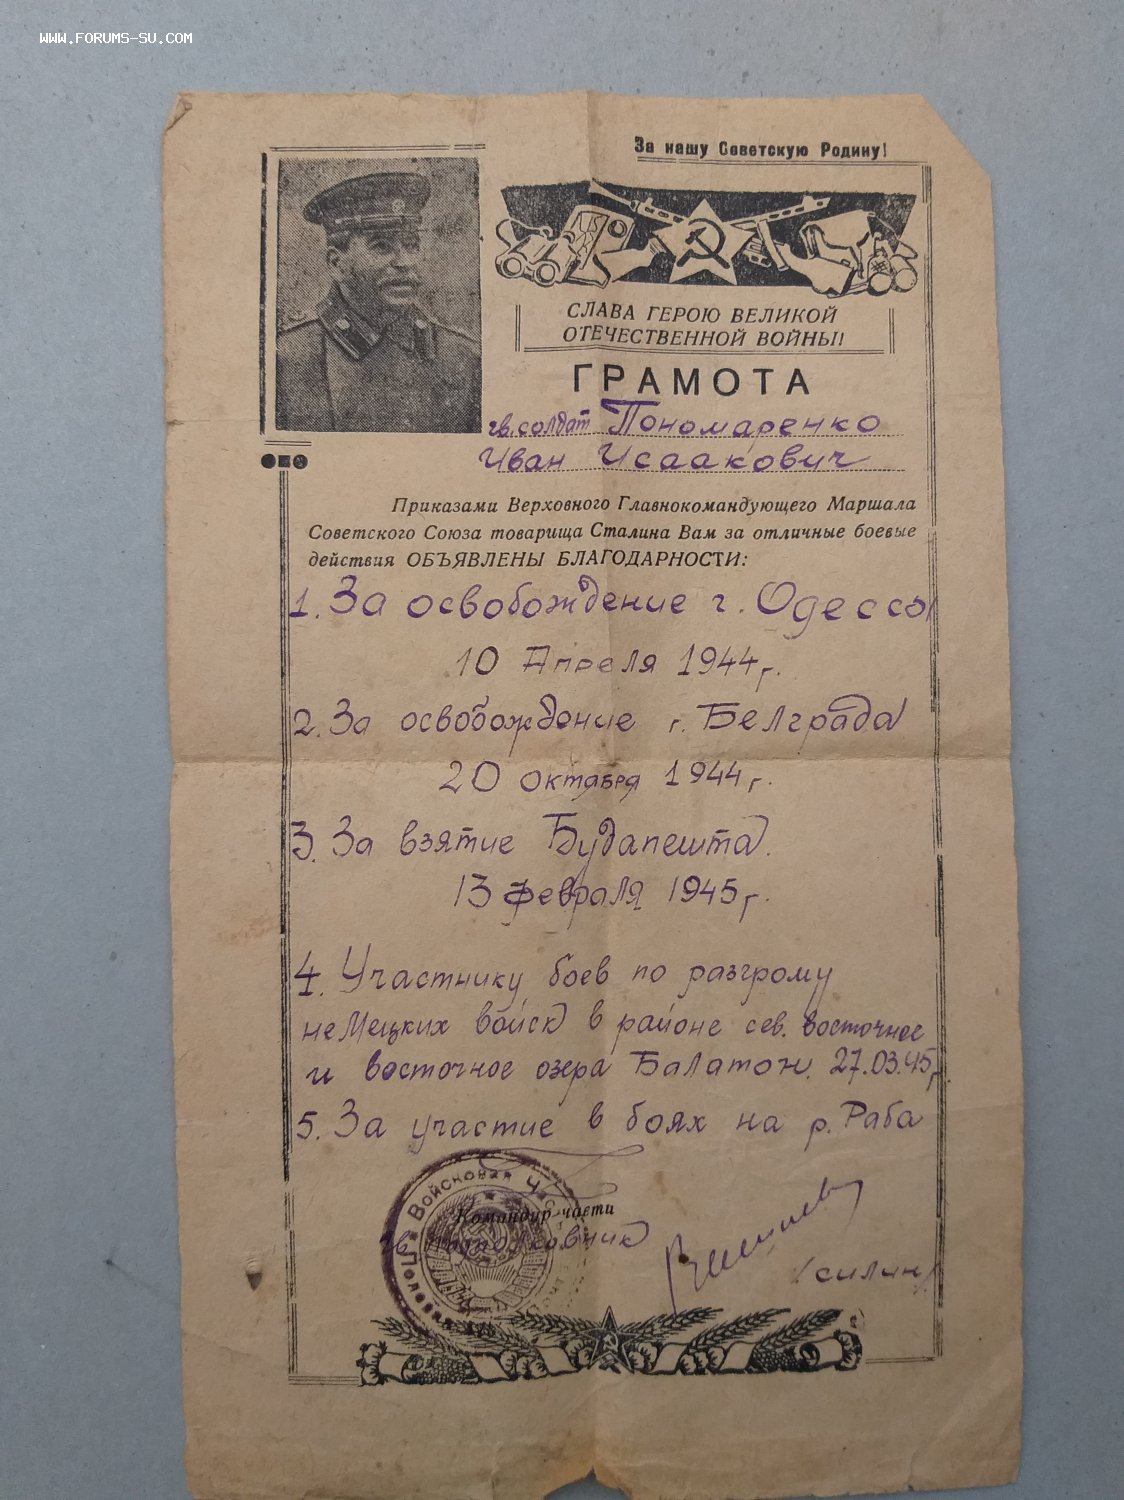 WWW.FORUMS-SU.COM
За нашу Советскую Родину!
СЛАВА ГЕРОЮ ВЕЛИКОЙ
ОТЕЧЕСТВЕННОЙ ВОЙНЫ!
ГРАМОТА
гв. солдат Пономаренко
Иван Исаакович
Приказами Верховного Главнокомандующего Маршала
Советского Союза товарища Сталина Вам за отличные боевые
действия ОБЪЯВЛЕНЫ БЛАГОДАРНОСТИ:
1. За освобождение г. Одессы
10 Апреля 1944 г.
2. За освобождение г. Белграда
20 октября 1944 г.
3. За взятие Будапешта.
13 февраля 1945 г.
4. Участнику боев по разгрому
немецких войск в районе сев. восточнее
и восточное озера Балатон. 27.03.45 г.
5. За участие в боях на р. Раба
Войсковая Част
Командир части
гв. подполковник
Полевая
/силин/